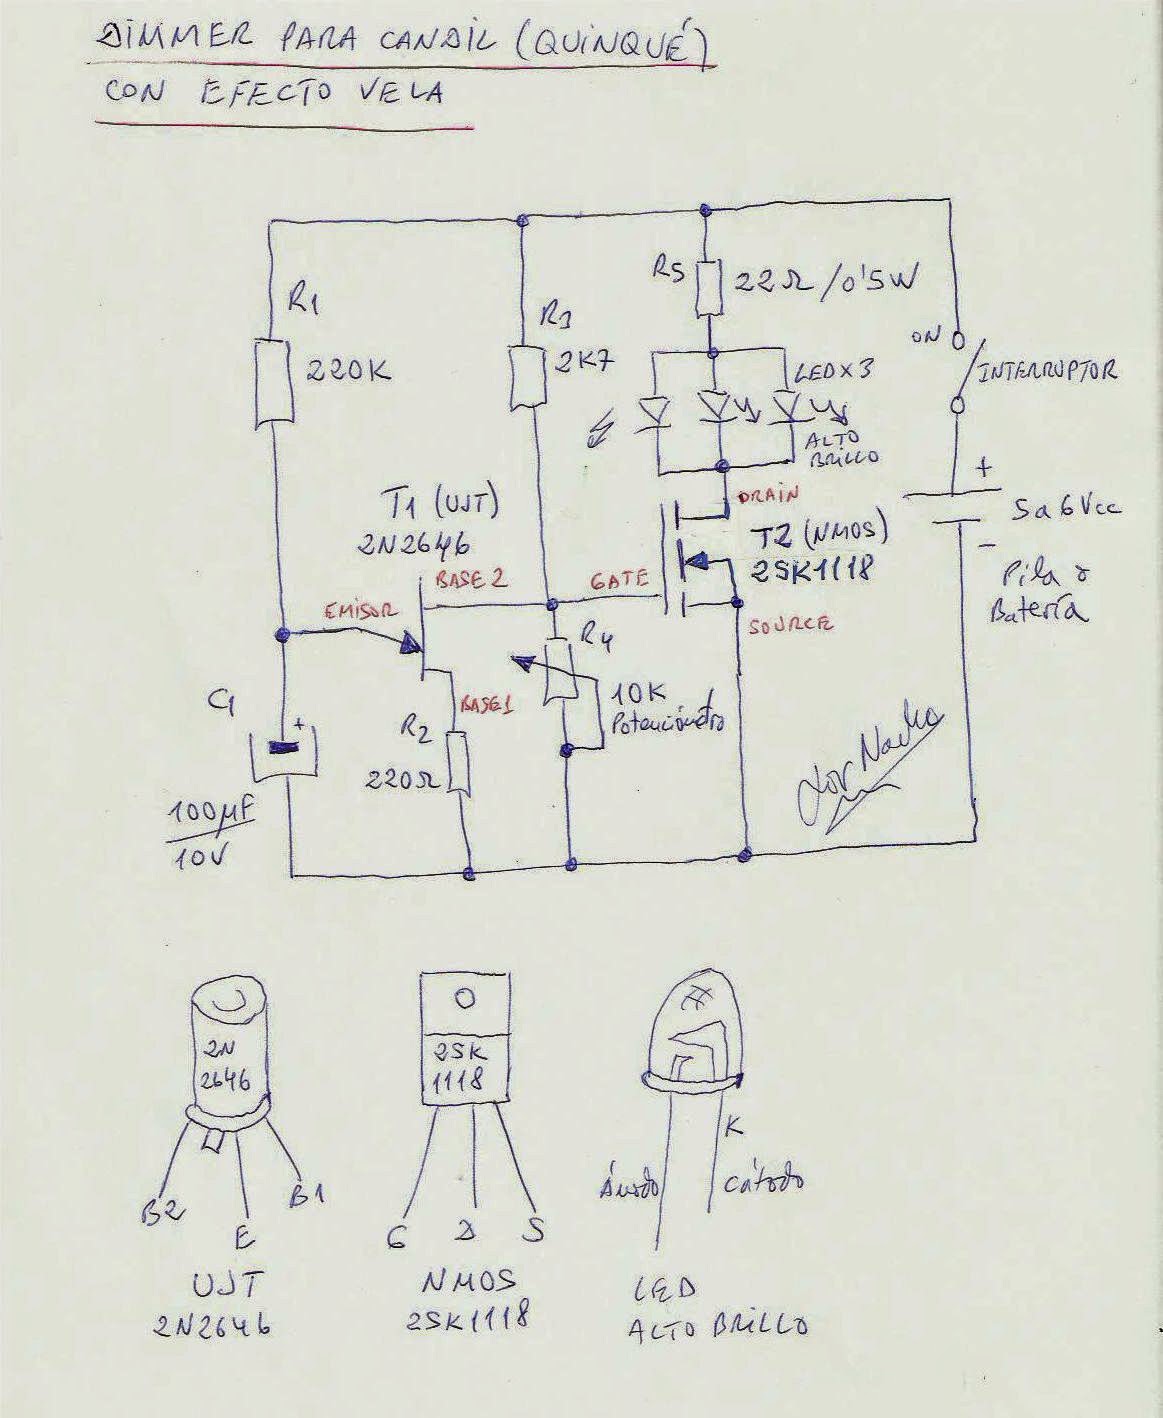 DIMMER PARA CANDIL (QUINQUÉ)
CON EFECTO VELA
R1
220K
R3
2K7
R5
22Ω/0'5W
LED X 3
ALTO
BRILLO
ON
INTERRUPTOR
+
5 a 6 Vcc
-
Pila o
Batería
T1 (UJT)
2N2646
BASE 2
EMISOR
BASE1
GATE
DRAIN
T2 (NMOS)
2SK1118
SOURCE
R4
10K
Potenciómetro
C1
+
100µF
10V
R2
220Ω
2N
2646
B2
E
B1
UJT
2N2646
2SK
1118
G
D
S
NMOS
2SK1118
K
Ánodo
Cátodo
LED
ALTO BRILLO